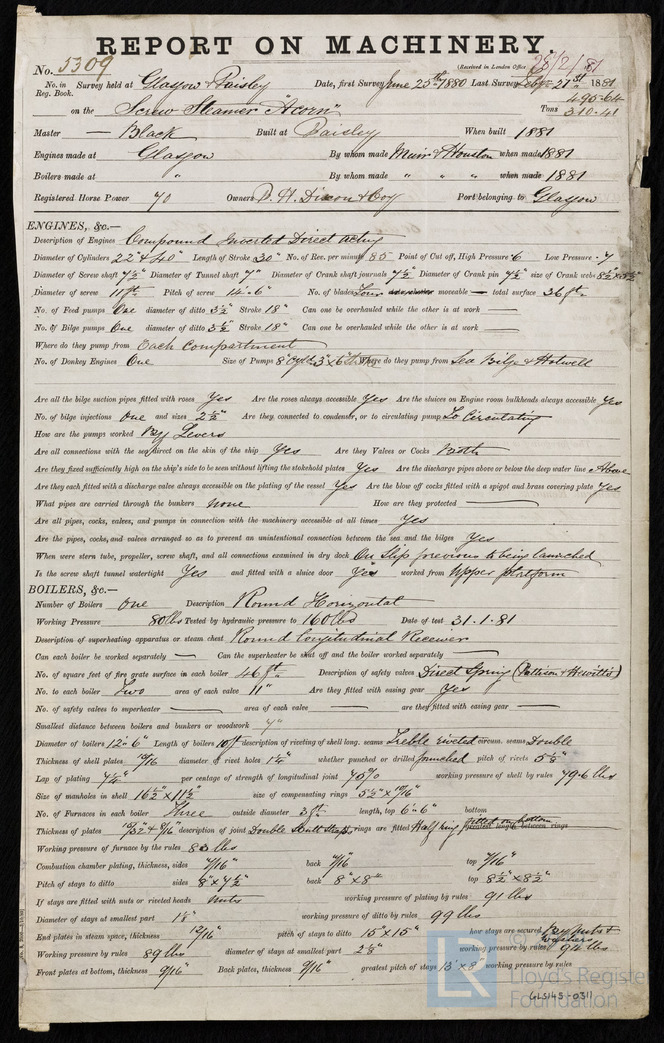 REPORT ON MACHINERY.
No. 5309 (Received in London Office 28/2/81)
No. in Reg. Book. Survey held at Glasgow & Paisley Date, first Survey June 25th 1880 Last Survey Feby 21st 1881
on the Screw Steamer "Acorn" Tons 495.64 310.41
Master — Black Built at Paisley When built 1881
Engines made at Glasgow By whom made Muir & Houston when made 1881
Boilers made at " By whom made " " " when made 1881
Registered Horse Power 70 Owners P. H. Dixon & Coy Port belonging to Glasgow
ENGINES, &c.—
Description of Engines Compound Inverted Direct acting
Diameter of Cylinders 22" & 40" Length of Stroke 30" No. of Rev. per minute 85 Point of Cut off, High Pressure .6 Low Pressure .7
Diameter of Screw shaft 7½" Diameter of Tunnel shaft 7" Diameter of Crank shaft journals 7½" Diameter of Crank pin 7½" size of Crank webs
Diameter of screw 11 ft Pitch of screw 14'-6" No. of blades Four moveable — total surface 36 ft.
No. of Feed pumps One diameter of ditto 3½" Stroke 18" Can one be overhauled while the other is at work —
No. of Bilge pumps One diameter of ditto 3½" Stroke 18" Can one be overhauled while the other is at work —
Where do they pump from Each Compartment
No. of Donkey Engines One Size of Pumps Where do they pump from Sea Bilge & Hotwell
Are all the bilge suction pipes fitted with roses Yes Are the roses always accessible Yes Are the sluices on Engine room bulkheads always accessible Yes
No. of bilge injections One and sizes 2½" Are they connected to condenser, or to circulating pump To Circulating
How are the pumps worked By Levers
Are all connections with the sea direct on the skin of the ship Yes Are they Valves or Cocks Both
Are they fixed sufficiently high on the ship's side to be seen without lifting the stokehold plates Yes Are the discharge pipes above or below the deep water line Above
Are they each fitted with a discharge valve always accessible on the plating of the vessel Yes Are the blow off cocks fitted with a spigot and brass covering plate Yes
What pipes are carried through the bunkers None How are they protected —
Are all pipes, cocks, valves, and pumps in connection with the machinery accessible at all times Yes
Are the pipes, cocks, and valves arranged so as to prevent an unintentional connection between the sea and the bilges Yes
When were stern tube, propeller, screw shaft, and all connections examined in dry dock On Slip previous to being launched
Is the screw shaft tunnel watertight Yes and fitted with a sluice door Yes worked from Upper platform
BOILERS, &c.—
Number of Boilers One Description Round Horizontal
Working Pressure 80 lbs Tested by hydraulic pressure to 160 lbs Date of test 31.1.81
Description of superheating apparatus or steam chest Round longitudinal Receiver
Can each boiler be worked separately — Can the superheater be shut off and the boiler worked separately —
No. of square feet of fire grate surface in each boiler 46 ft. Description of safety valves Direct Spring
No. to each boiler Two area of each valve 11" Are they fitted with easing gear Yes
No. of safety valves to superheater — area of each valve — are they fitted with easing gear —
Smallest distance between boilers and bunkers or woodwork 7"
Diameter of boilers 12'-6" Length of boilers 10 ft description of riveting of shell long. seams Treble riveted circum. seams Double
Thickness of shell plates diameter of rivet holes 1¼" whether punched or drilled punched pitch of rivets 5½"
Lap of plating 7¼" per centage of strength of longitudinal joint 75% working pressure of shell by rules 79.6 lbs
Size of manholes in shell 16½" x 11½" size of compensating rings 5½" x 10/16"
No. of Furnaces in each boiler Three outside diameter 3 ft. length, top 6'-6" bottom
Thickness of plates description of joint Double Butt Strap rings are fitted Half ring fitted on bottom greatest length between rings
Working pressure of furnace by the rules 80 lbs
Combustion chamber plating, thickness, sides 7/16" back 7/16" top 7/16"
Pitch of stays to ditto sides 8" x 7½" back 8" x 8" top 8½" x 8½"
If stays are fitted with nuts or riveted heads Nuts working pressure of plating by rules 91 lbs
Diameter of stays at smallest part working pressure of ditto by rules 99 lbs
End plates in steam space, thickness 12/16" pitch of stays to ditto 15" x 15" how stays are secured By Nuts & Washers
Working pressure by rules 89 lbs diameter of stays at smallest part 2⅛" working pressure by rules 94 lbs
Front plates at bottom, thickness 9/16" Back plates, thickness 9/16" greatest pitch of stays 13" x 8" working pressure by rules
LR Lloyd's Register Foundation
GLS145-0311